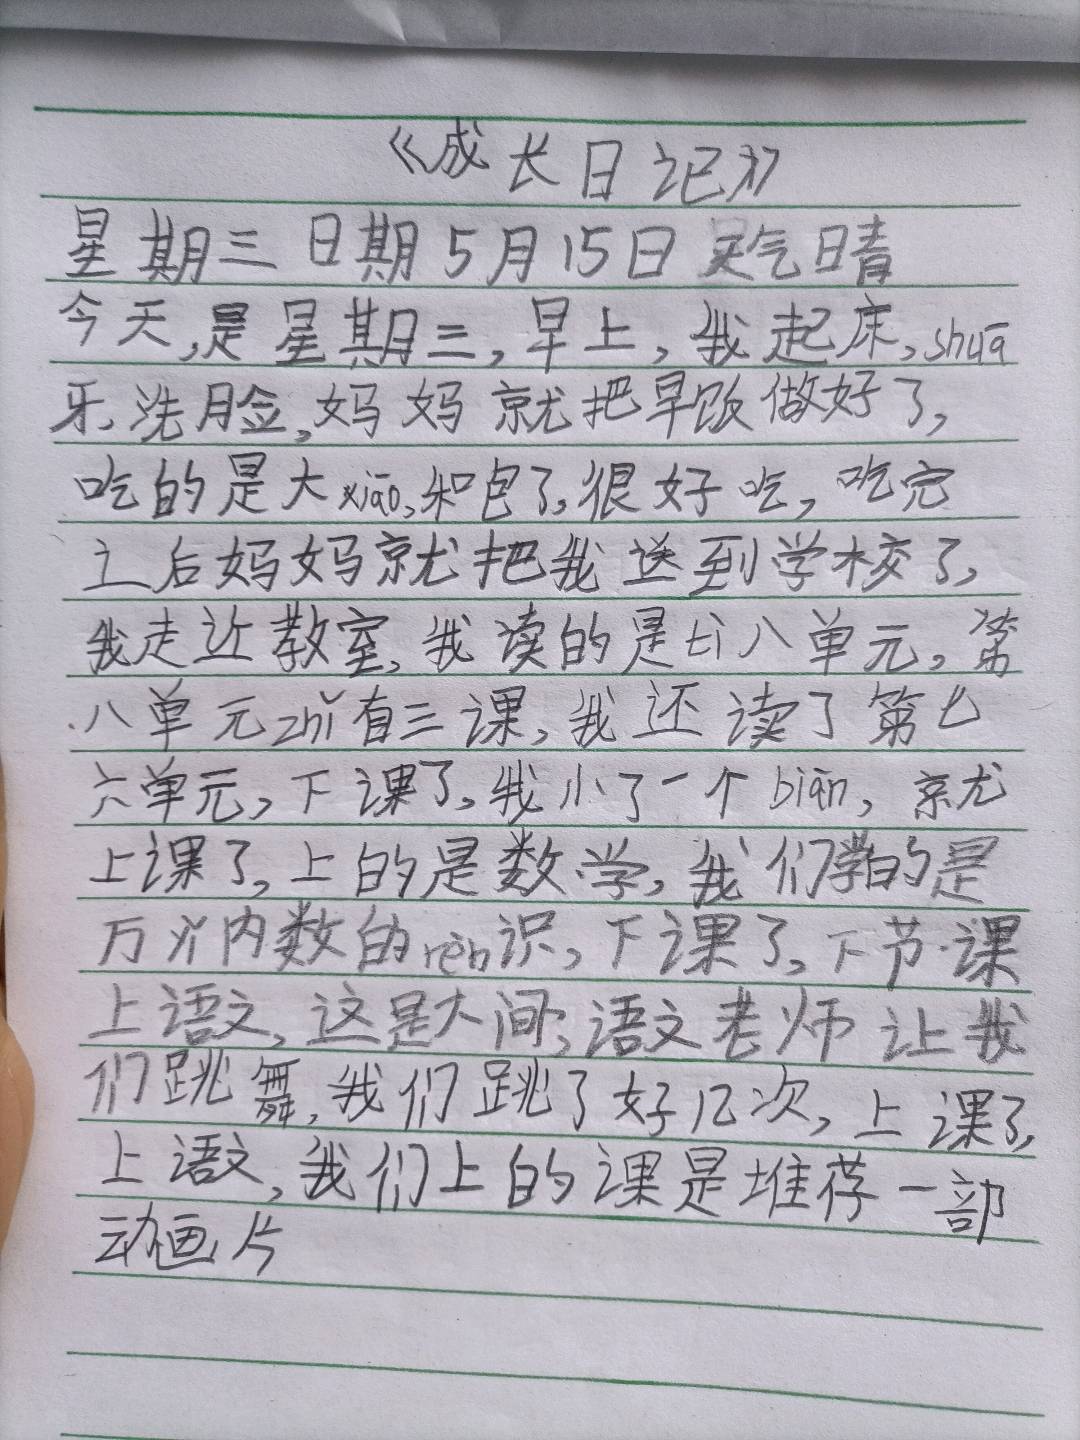 《成长日记》
星期三 日期5月15日 天气晴
今天,是星期三,早上,我起床,shuā
牙,洗脸,妈妈就把早饭做好了,
吃的是大xiāo,和包了,很好吃,吃完
之后妈妈就把我送到学校了,
我走近教室,我读的是七八单元,第
八单元zhǐ有三课,我还读了第七
六单元,下课了,我小了一个biàn,就
上课了,上的是数学,我们学的是
万以内数的rèn识,下课了,下节课
上语文,这是大间,语文老师让我
们跳舞,我们跳了好几次,上课了,
上语文,我们上的课是堆荐一部
动画片